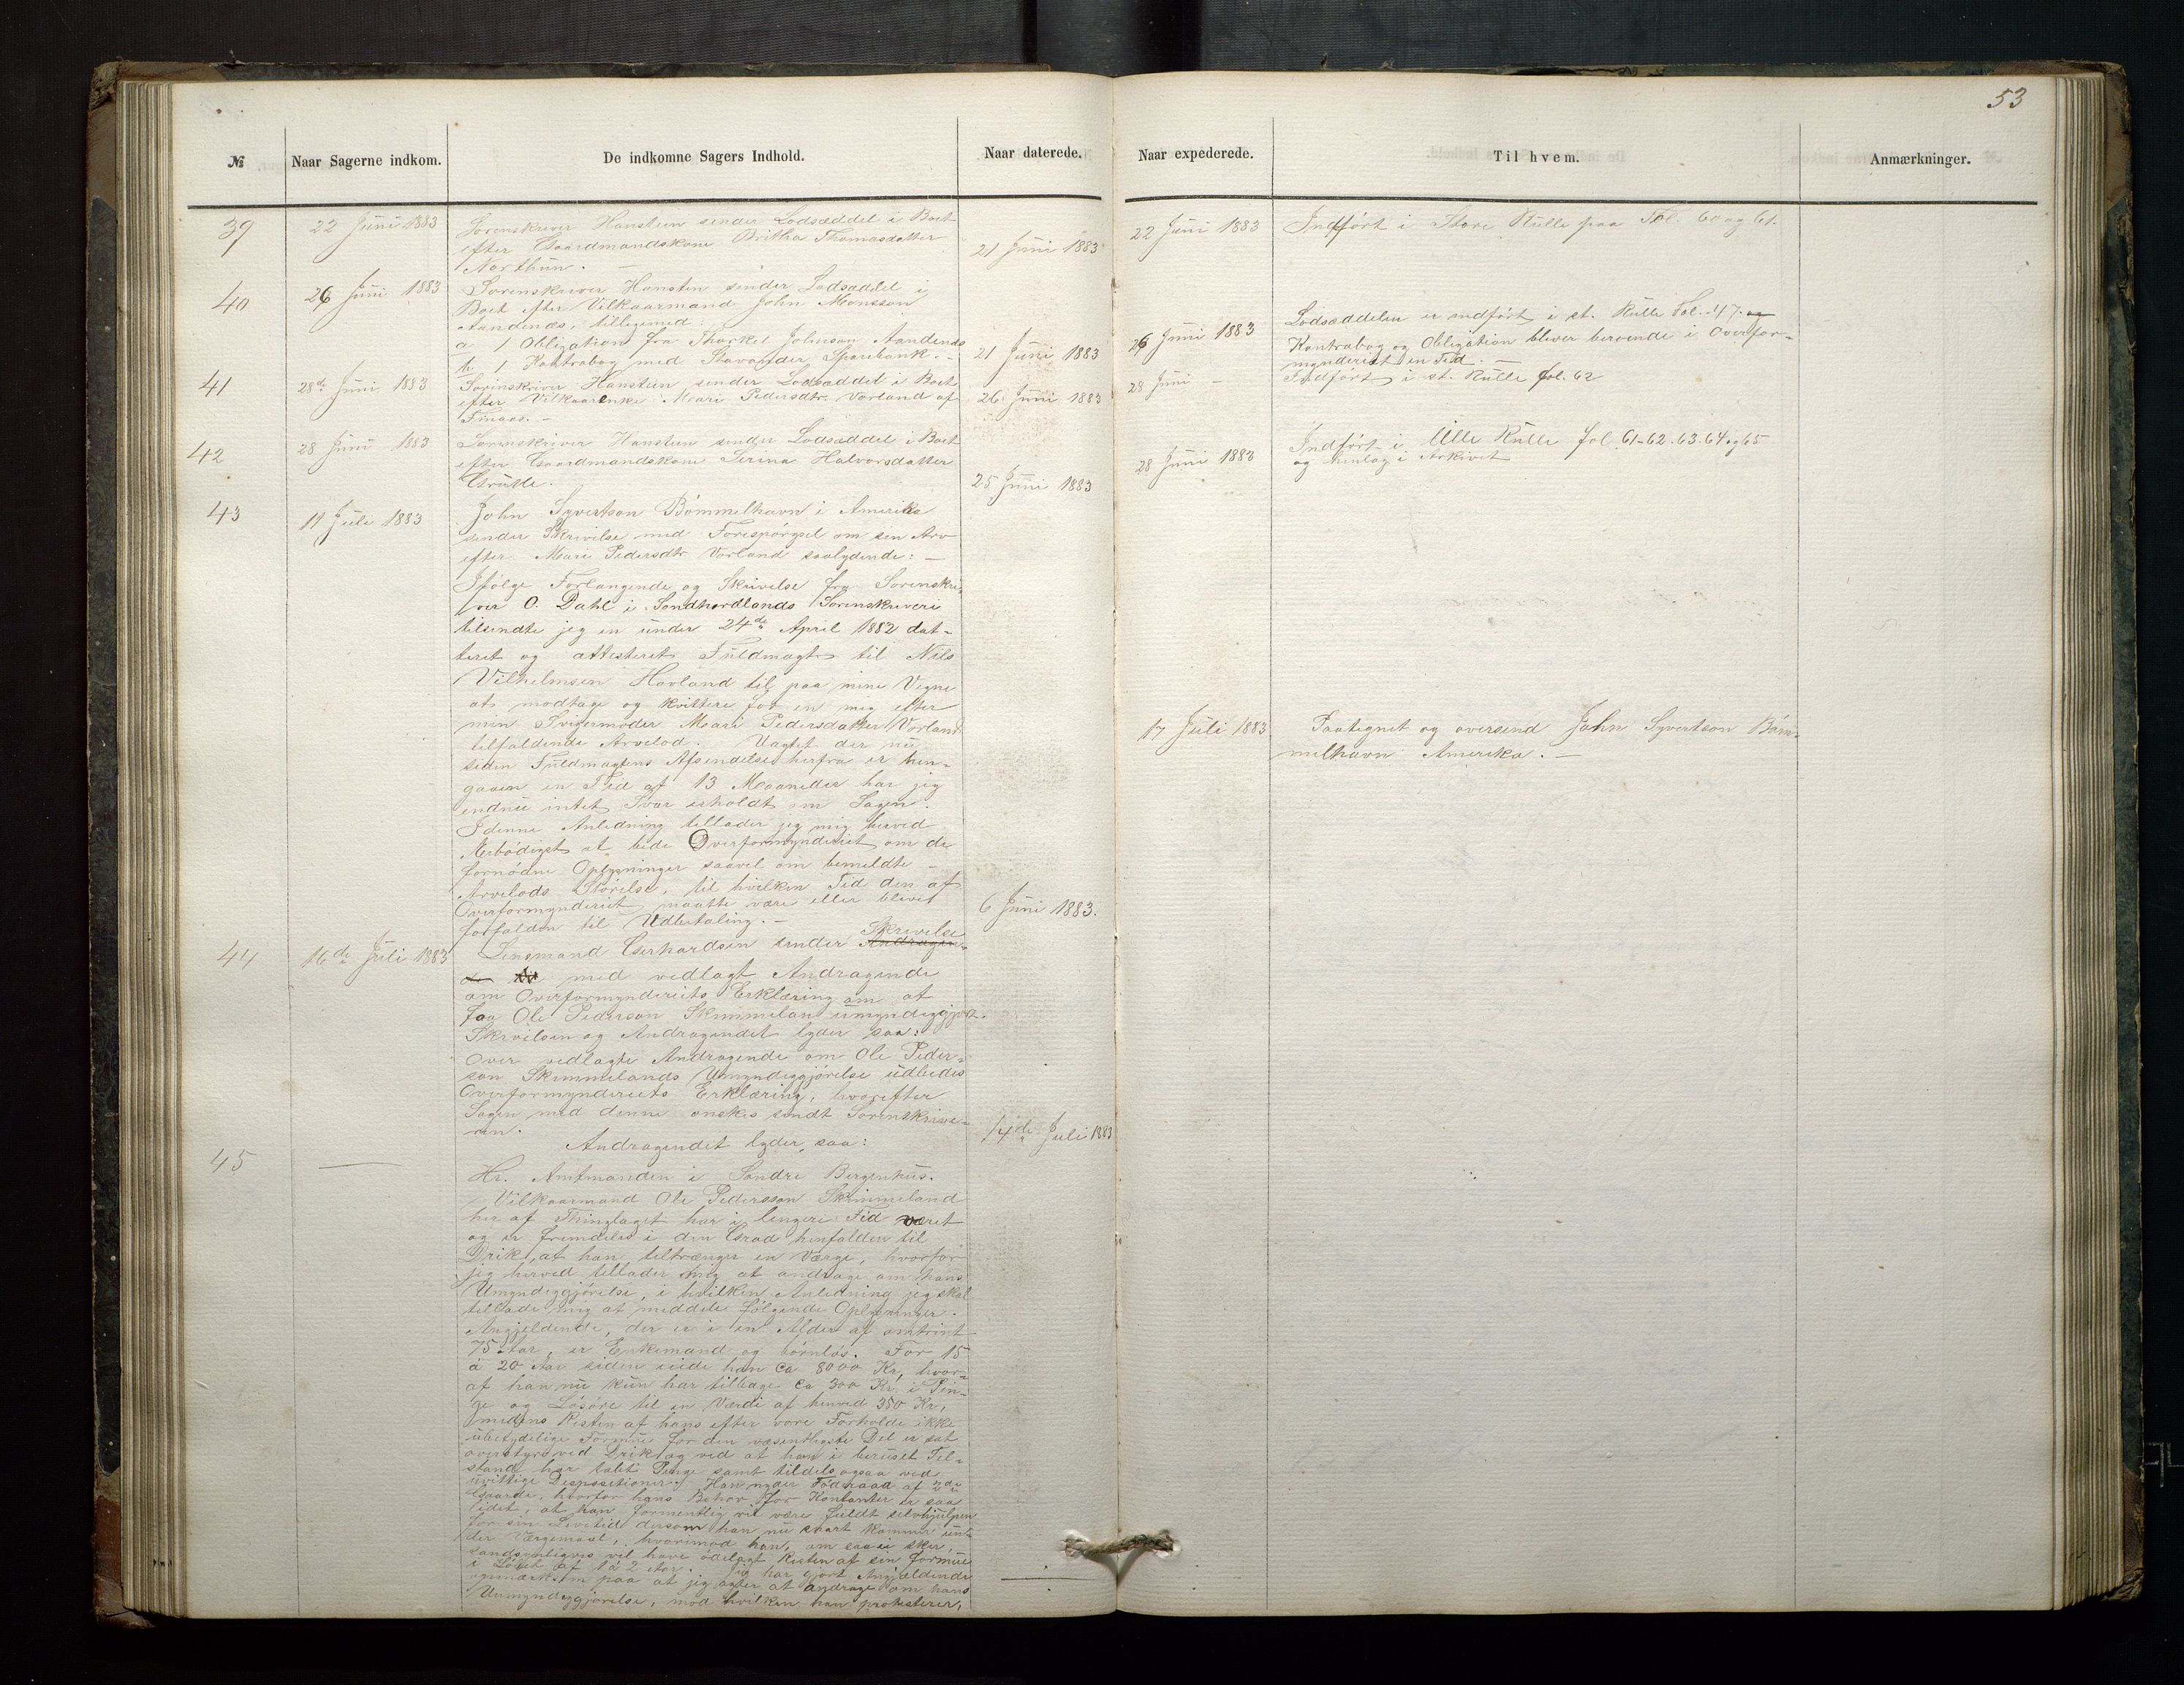 53
№ Naar Sagerne indkom. De indkomne Sagers Indhold. Naar daterede. Naar expederede. Til hvem. Anmærkninger.
39 22 Juni 1883 Sorenskriver Hansteen sender Lodsæddel i Boet
efter Gaardmandskone Britha Thomasdatter
Northun. —
21 Juni 1883
22 Juni 1883 Indført i Store Rulle paa Fol. 60 og 61.
40 26 Juni 1883 Sorenskriver Hansten sender Lodsæddel i
Boet efter Vilkaarmand John Monsson
Aandenæs, tilligemed
a 1 Obligation fra Thorkel Johnson Aandenæs
b. 1 Kontrabog med Stavanger Sparebank. —
21 Juni 1883
26 Juni 1883 Lodsæddelen er indført i st. Rulle Fol. 47. og
Kontrabog og Obligation bliver beroende i Overfor-
mynderiet en Tid. —
41 28de Juni 1883 Sorinskriver Hansteen sender Lodsæddel i Boet
efter Vilkaarenke Mari Pedersdtr Vorland af
Finaas. —
26 Juni 1883
28 Juni — Indført i st. Rulle fol. 62
42 28 Juni 1883 Sorenskriver Hansteen sender Lodsæddel i Boet
efter Gaardmandskone Serina Halvorsdatter
25 Juni 1883
28 Juni 1883 Indført i lille Rulle fol 61-62.63.64 og 65
og henlag i Arkivet
43 11 Juli 1883 John Syvertson Bömmelhavn i Amerika
sender Skrivelse med Forespörgsel om sin Arv
efter Mari Pedersdtr Vorland saalydende: —
Ifölge Forlangende og Skrivelse fra Sorenskri-
ver O. Dahl i Söndhordlands Sorenskriveri
tilsendte jeg en under 24de April 1882 dat-
teret og attesteret Fuldmagt til Nils
Vilhelmsen Hovland til paa mine Vegne
at modtage og kvittere for en mig efter
min Svigermoder Mari Pedersdatter Vorland
tilfaldende Arvelod. Uagtet der nu
siden Fuldmagtens Afsendelse herfra er hen-
gaaen en Tid af 13 Maaneder har jeg
endnu intet Svar erholdt om Sagen.
I denne Anledning tillader jeg mig herved
Ærbödigst at bede Overformynderiet om de
fornödne Oplysninger saavel om bemeldte
Arvelods Störelse, til hvilken Tid den af
Overformynderiet maatte være eller blevet
forfalden til Udbetaling. —
6 Juni 1883.
17 Juli 1883 Paategnet og oversend John Syvertson Böm-
melhavn Amerika. —
44 16de Juli 1883 Lensmand Gerhardsen sender Skrivelse
Andragen-
de med vedlagt Andragende
om Overformynderiets Erklæring om at
faa Ole Pederson Skimmeland umyndiggjort.
Skrivelsen og Andragendet lyder saa:
Over vedlagte Andragende om Ole Peder-
son Skimmelands Umyndiggjörelse udbedes
Overformynderiets Erklæring, hvorefter
Sagen med denne önskes sendt Sorenskrive-
ren.
14de Juli 1883
Andragendet lyder saa:
45 — Hr. Amtmanden i Söndre Bergenhus.
Vilkaarmand Ole Pedersson Skimmeland
her af Thinglaget har i lengere Tid været
og er fremdeles i den Grad henfalden til
Drik, at han tiltrænger en Værge, hvorfor
jeg herved tillader mig at andrage om hans
Umyndiggjörelse, i hvilken Anledning jeg skal
tillade mig at meddele fölgende Oplysninger.
Angjeldende, der er i en Alder af omtrint
75 Aar, er Enkemand og börnlös. For 15
à 20 Aar siden eiede han ca 8000 Kr, hvor-
af han nu kun har tilbage ca 300 Kr i Pen-
ge og Lösöre til en Værdi af henved 350 Kr,
medens Resten af hans efter vore Forholde ikke
ubetydelige Formue for den væsentligste Del er sat
overstyr ved Drik og ved at han i beruset Til-
stand har tabt Penge samt tildels ogsaa ved
uvittige Dispositioner. Han nyder Födraad af 2de
Gaarde, hvorfor hans Behov for Kontanter er saa
lidet, at han formentlig vil være fuldt selvhjulpen
for sin Levetid dersom han nu snart kommer un-
der Værgemaal, hvorimod han, om saa ei sker,
sandsynligvis vil have ödelagt Resten af sin Formue
i Löbet af 1 à 2 Aar. Jeg har gjort Angjældende
opmærksom paa at jeg agter at andrage om hans
Umyndiggjörelse, mod hvilken han protesterer,